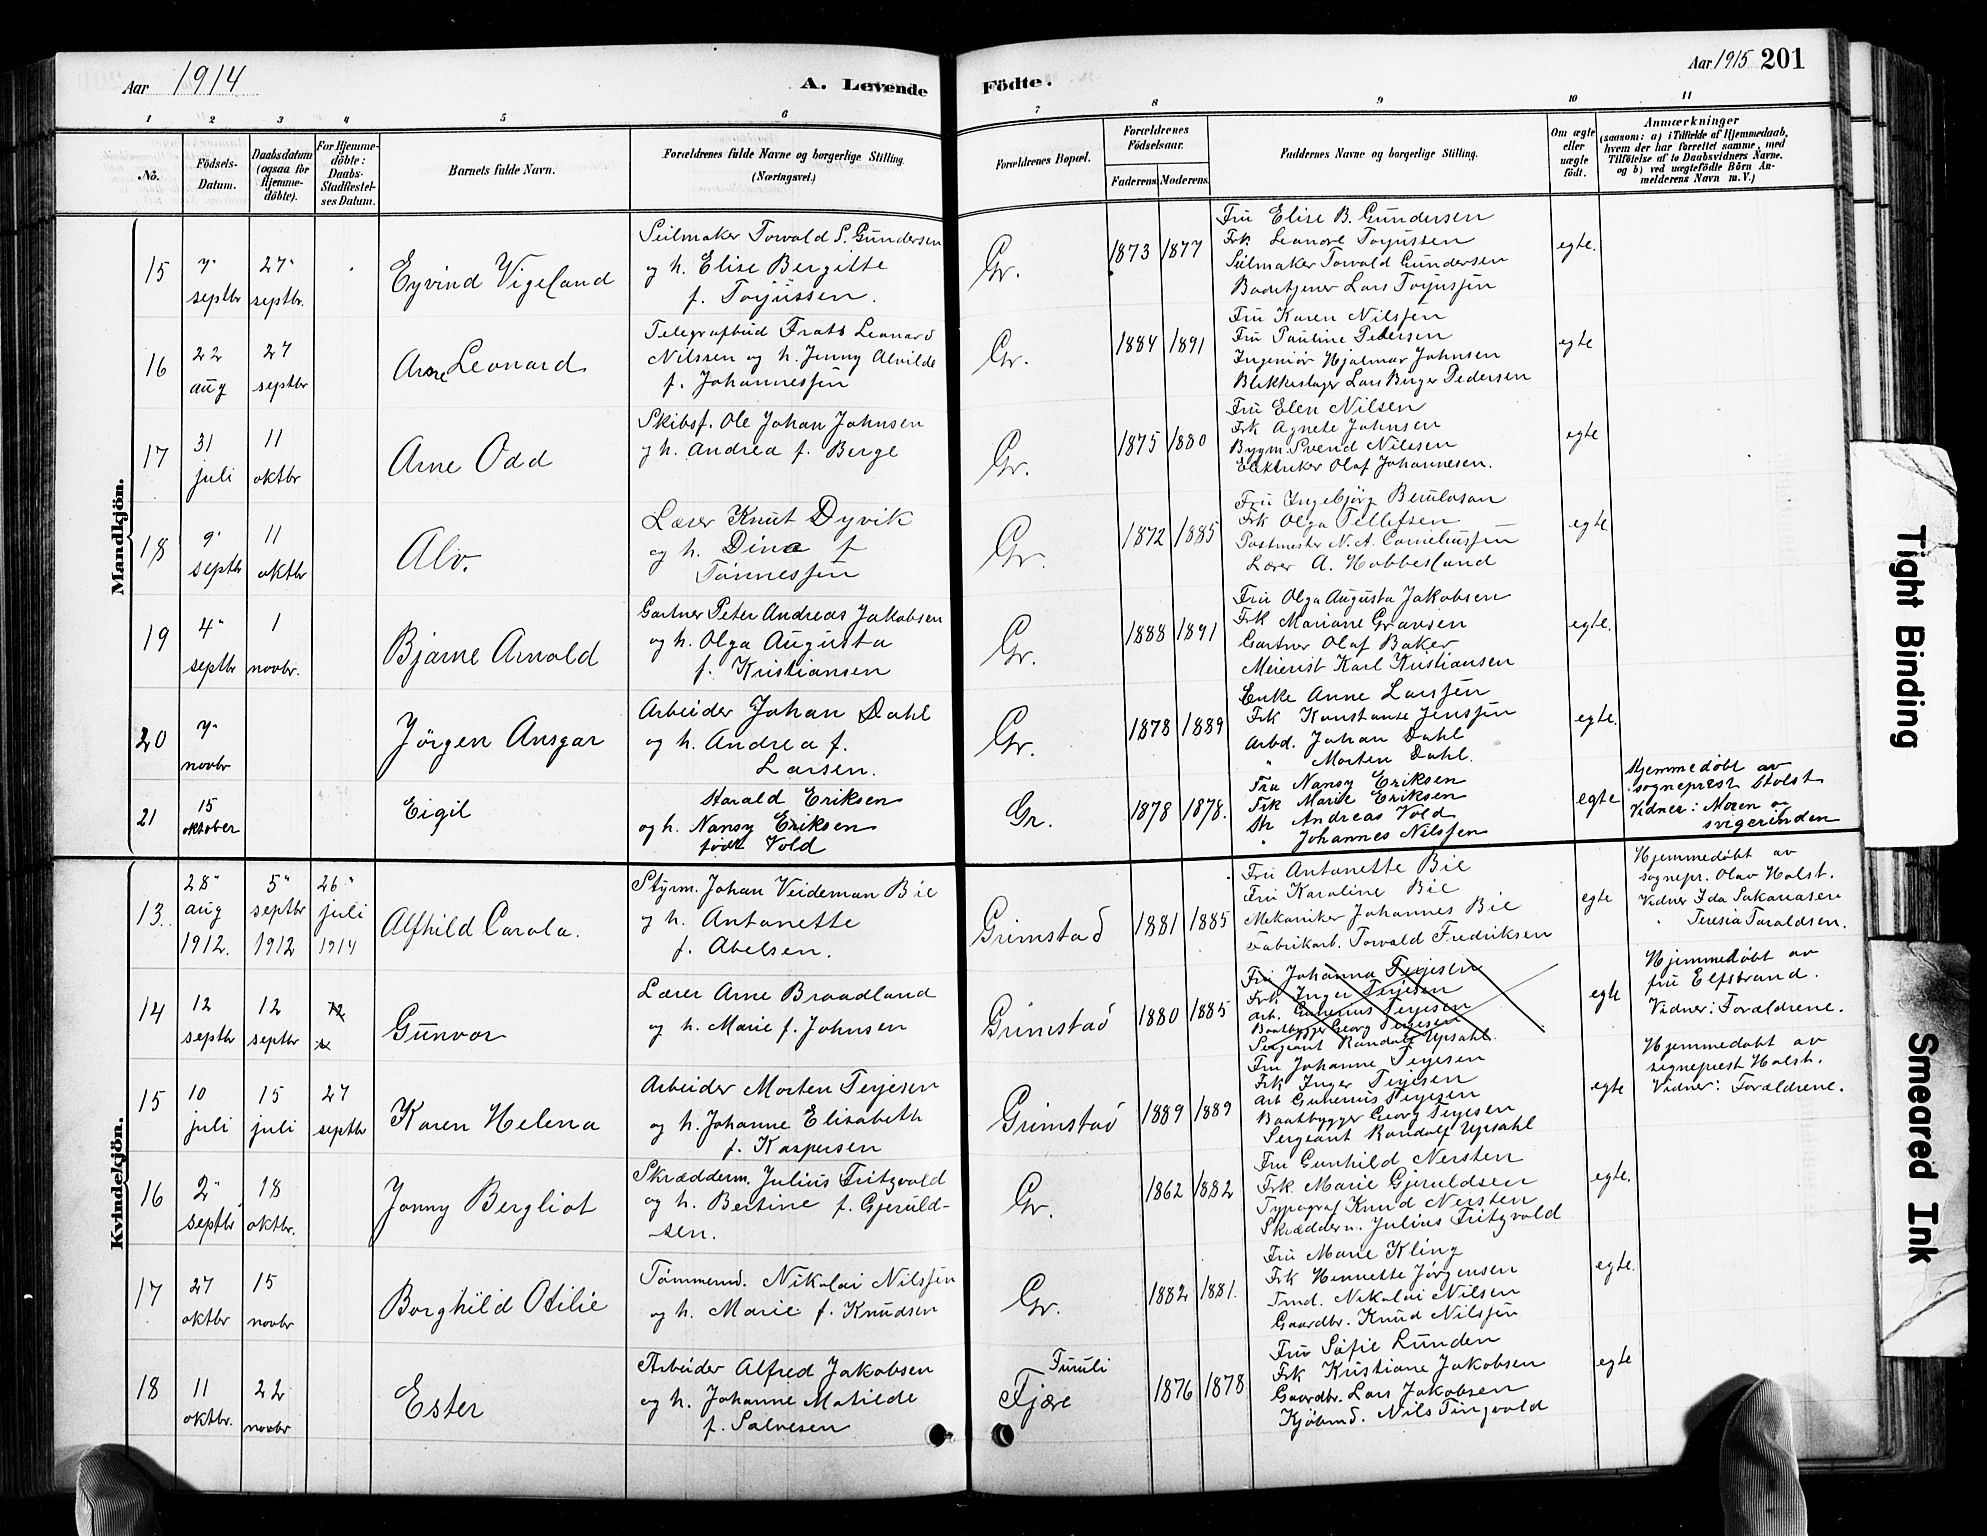 Aar 1914 A. Levende
Födte. Aar 1915 201
1 2 3 4 5 6
7 8 9 10 11
No.
Födsels-Datum.
Daabsdatum (ogsaa for Hjemme-döbte).
For Hjemme-döbte: Daabs-Stadfæstel-ses Datum.
Barnets fulde Navn.
Forældrenes fulde Navne og borgerlige Stilling.
(Næringsvei.)
Forældrenes Bopæl.
Forældrenes Födselsaar.
Faderens. Moderens.
Faddernes Navne og borgerlige Stilling.
Om ægte eller uægte födt.
Anmærkninger
(saasom: a) i Tilfælde af Hjemmedaab,
hvem der har forrettet samme, med
Tilföielse af to Daabsvidners Navne.
og b) ved uægtefödte Börn An-
melderens Navn m. V.)
Mandkjön.
15 7. septbr 27. septbr. Eyvind Vigeland
Seilmaker Torvald S. Gundersen
og h. Elise Bergitte
f. Torjussen.
Gr. 1873 1877
Fru Elise B. Gundersen
Frk Leonore Torjussen
Seilmaker Torvald Gundersen
Badetjener Lars Torjussen
egte.
16 22 aug 27 septbr Arne Leonard
Telegrafbud Frats Leonard
Nilssen og h. Jenny Alvilde
f. Johannessen
Gr. 1884 1891
Fru Karen Nilssen
Fru Pauline Pedersen
Ingeniör Hjalmar Johnsen
Blikkeslager Lars Birger Pedersen
egte
17 31 juli 11 oktbr Arne Odd
Skibsf. Ole Johan Johnsen
og h. Andrea f. Berge
Gr. 1875 1880
Fru Elen Nilsen
Frk Agnete Johnsen
Bygm. Svend Nilssen
Elektriker Olaf Johannesen.
egte
18 9. septbr 11 oktbr Alv.
Lærer Knut Dyvik
og h. Dina f
Tønnessen
Gr. 1872 1885
Fru Ingebjörg
Frk Olga Tellefsen
Postmester N. A. Corneliussen
Lærer A. Hobbesland
egte
19 4. septbr 1 novbr. Bjarne Arnold
Gartner Peter Andreas Jakobsen
og h. Olga Augusta
f. Kristiansen
Gr. 1888 1891
Fru Olga Augusta Jakobsen
Frk Mariane Gravsen
Gartner Olaf Baker
Meierist Karl Kristiansen
egte.
20 7. novbr Jörgen Ansgar
Arbeider Johan Dahl
og h. Andrea f.
Larsen.
Gr. 1878 1889
Enke Anne Larssen
Frk Konstanse Jenssen
Arbd. Johan Dahl
" Morten Dahl.
egte.
21 15 oktober Eigil
Harald Eriksen
og h. Nansy Eriksen
född Vold
Gr. 1878 1878.
Fru Nansy Eriksen
Frk Marie Eriksen
Hr Andreas Vold
" Johannes Nilssen
egte
Hjemmedøbt av
sogneprest Holst
Vidner: Moren og
svigerinden
Kvindekjön.
13. 28. aug 1912. 5. septbr 1912 26. juli 1914 Alfhild Carola.
Styrm. Johan Veideman Bie
og h. Antonette
f. Abelsen.
Grimstad 1881 1885
Fru Antonette Bie
Fru Karoline Bie
Mekaniker Johannes Bie
Fabrikarb. Torvald Fredriksen
egte
Hjemmedøbt av
sognepr. Olav Holst.
Vidner Ida Sakariasen
" Teresia Taraldsen.
14 12 septbr 12 septbr 12 Gunvor
Lærer Arne Braadland
og h. Marie f. Johnsen
Grimstad 1880 1885
Fru Johanna Terjesen
Frk. Inger Terjesen
Arb. Gunerius Terjesen
Baatbygger Georg Terjesen
Sergeant Randolf Upsahl.
egte
Hjemmedøbt av
fru Elfstrand.
Vidner: Forældrene.
15 10 juli 15 juli 27 septbr Karen Helena
Arbeider Morten Terjesen
og h. Johanne Elisabeth
f. Kaspersen
Grimstad 1889 1889
Fru Johanne Terjesen
Frk Inger Terjesen
Arb Gunerius Terjesen
Baatbygger Georg Terjesen
Sergeant Randolf Upsahl
egte
Hjemmedøbt av
sogneprest Holst.
Vidner: Forældrene.
16 2. septbr 18 oktbr. Jonny Bergliot
Skrædderm. Julius Fritzvold
og h. Bertine f. Gjeruld-
sen.
Gr. 1862 1882
Fru Gunhild Nersten
Frk. Marie Gjeruldsen
Typograf Knud Nersten
Skrædderm. Julius Fritzvold
egte.
17 27 oktbr 15 novbr Borghild Otilie
Tömmermd. Nikolai Nilssen
og h. Marie f. Knudsen
Gr. 1882 1881.
Fru Marie Kling
Frk Henriette Jörgensen
Tmd. Nikolai Nilsen
Gaardbr. Knud Nilssen
egte.
18 11 oktbr. 22 novbr Ester
Arbeider Alfred Jakobsen
og h. Johanne Matilde
f. Salvesen
Furuli
Fjære 1876 1878
Fru Sofie Lunden
Frk Kristiane Jakobsen
Gaardbr. Lars Jakobsen
Kjöbmd. Nils Tingvold
egte
Tight Binding
Smeared Ink